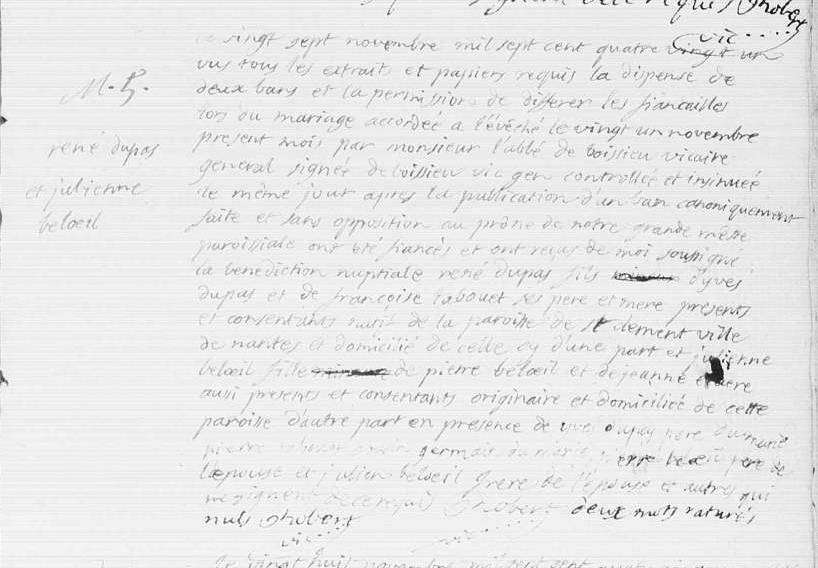 requis
vic
Le vingt sept novembre mil sept cent quatre vingt un
vus tous les extraits et papiers requis la dispense de
deux bans et la permission de differer les fiancailles
M. 5.
lors du mariage accordeé a l'évéché le vingt un novembre
present mois par monsieur l'abbé de boissieu vicaire
rené dupas
general signée de boissieu vic gen controlleé et insinueé
et julienne
le même jour apres la publication d'un ban canoniquement
beloeil
faite et sans opposition au prône de notre grande messe
paroissiale ont été fiancés et ont reçus de moi soussigné
la benediction nuptiale rené dupas fils d'yves
dupas et de françoise tabouet ses pere et mere presents
et consentants natif de la paroisse de st clement ville
de nantes et domicilié de celle cy d'une part et julienne
beloeil fille de pierre beloeil et de jeanne
aussi presents et consentants originaire et domiciliée de cette
paroisse d'autre part en presence de yves dupas pere du marié
pierre germain du marié pierre beloeil pere de
l'epouse et julien beloeil frere de l'epouse et autres qui
ne signent de ce requis deux mots raturés
nuls
vic
Le vingt huit novembre mil sept cent